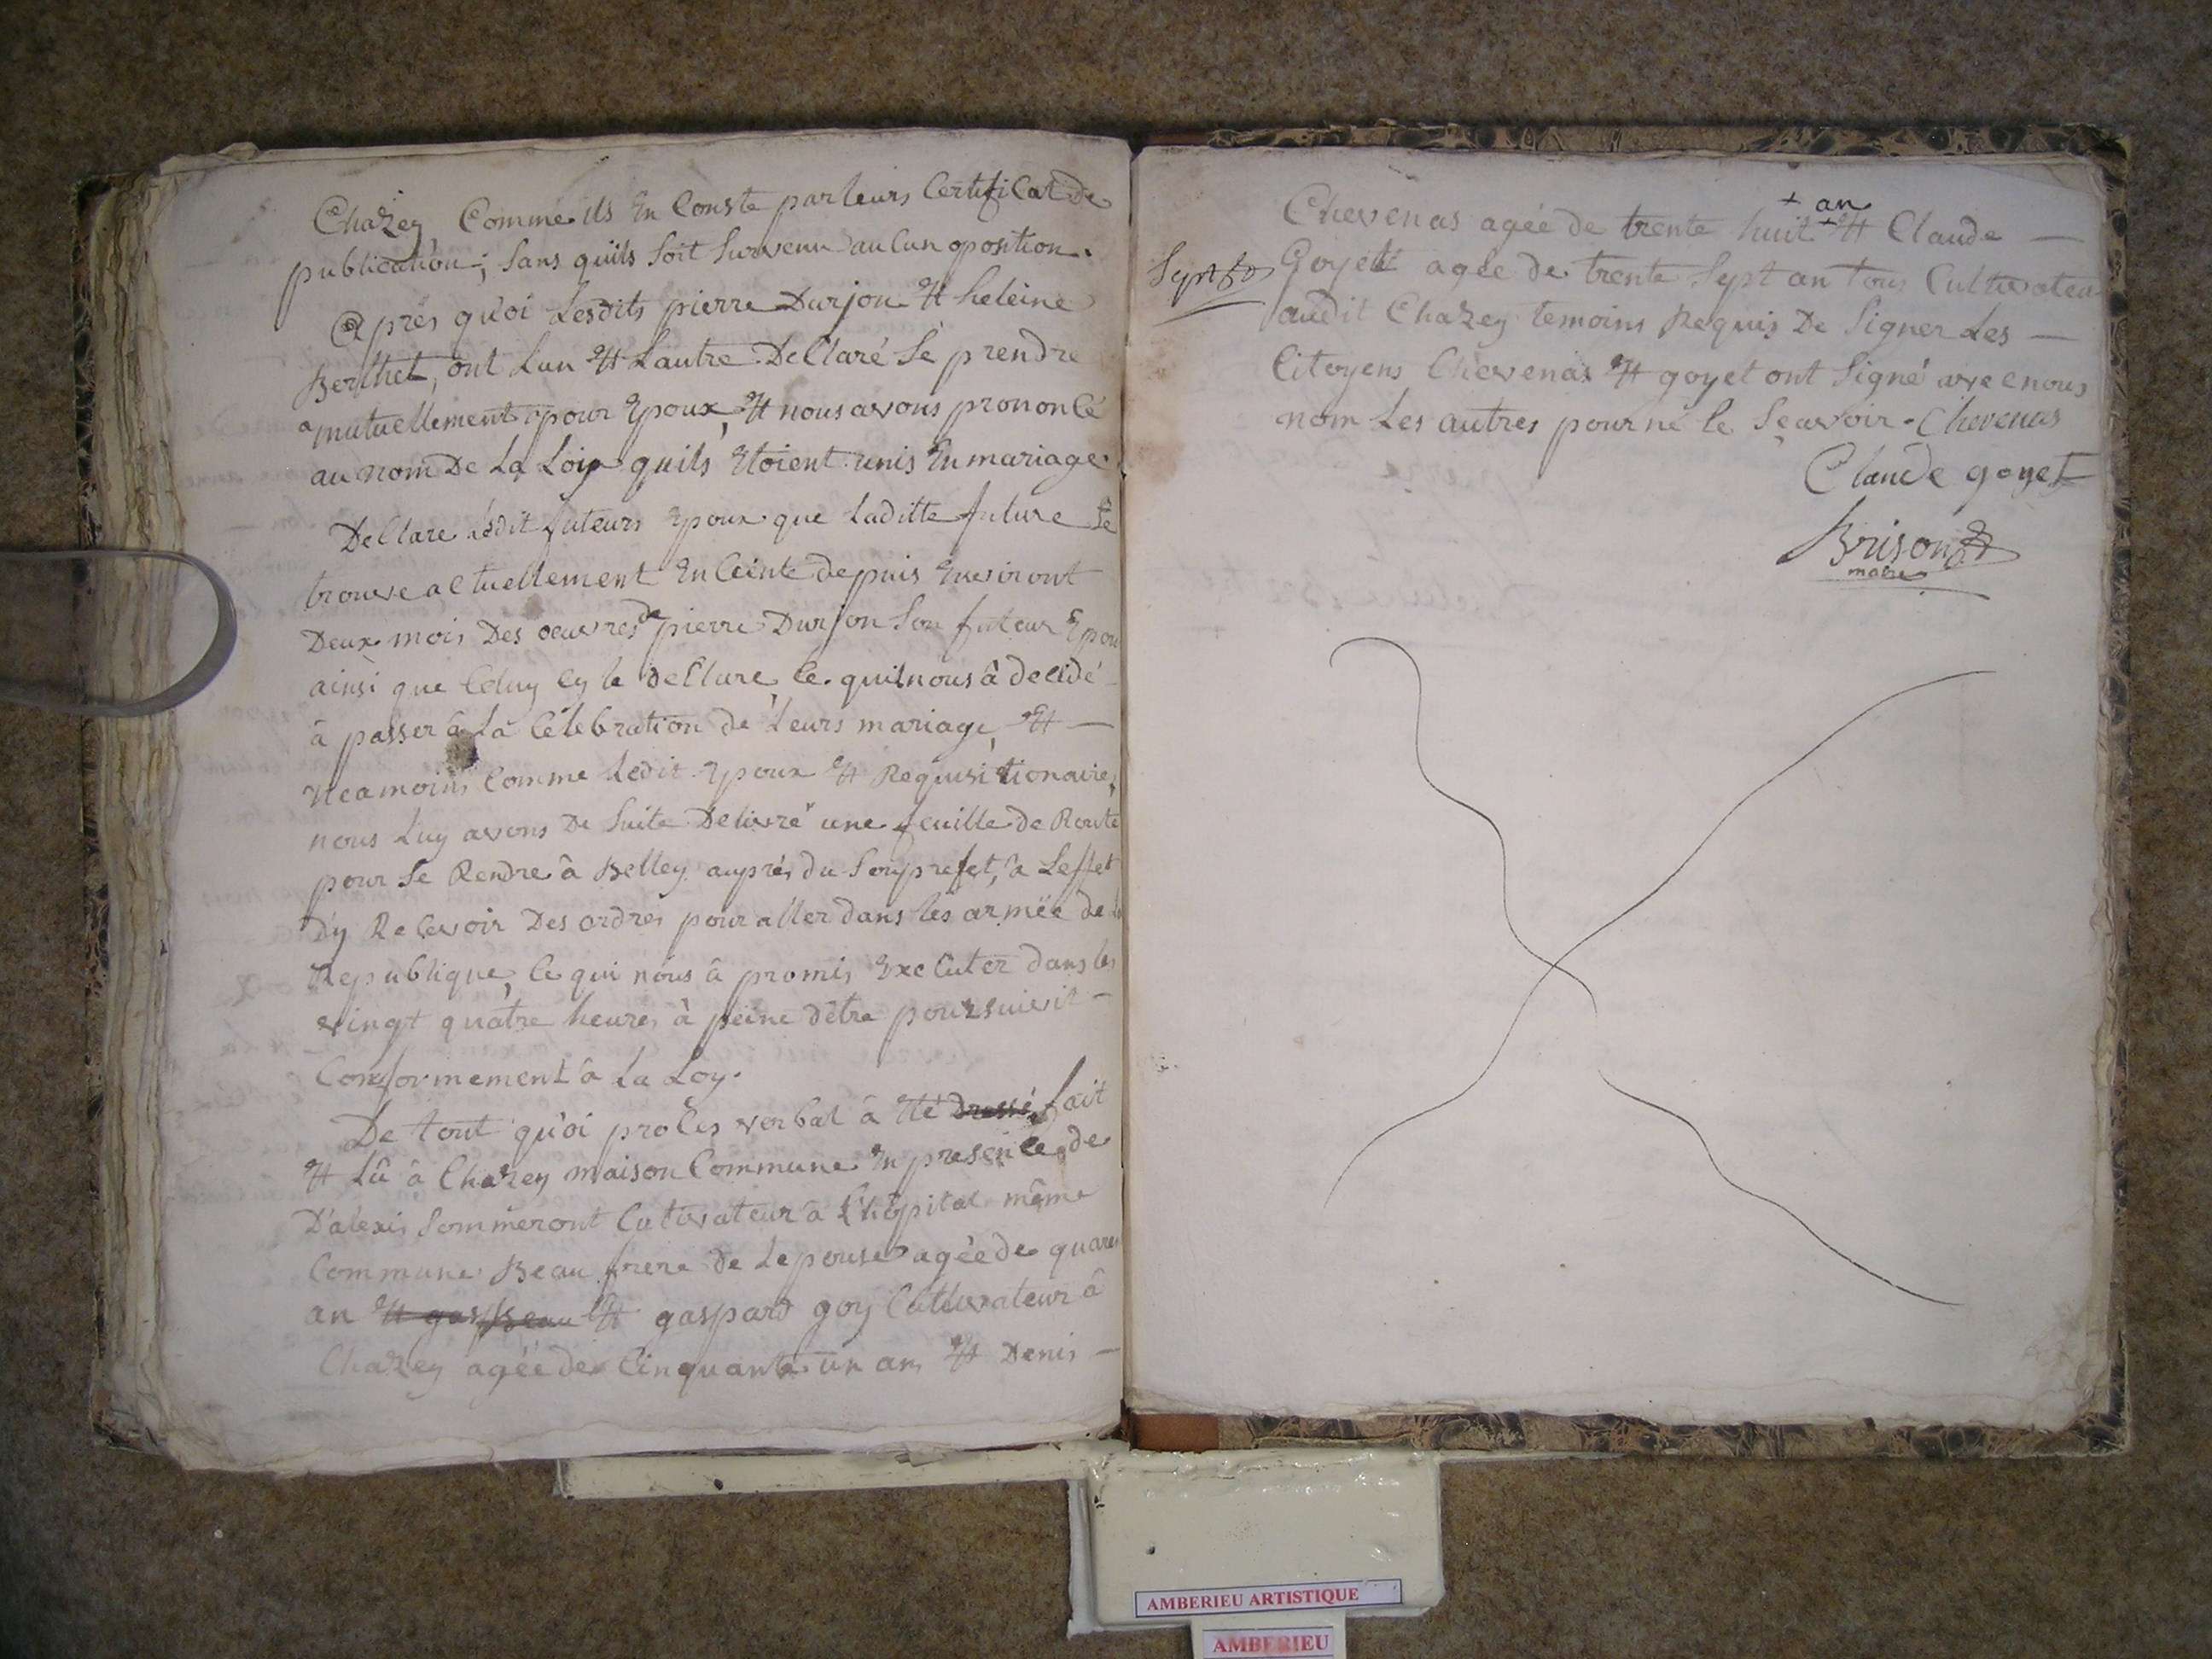 Chazey Comme ils En Conste par leurs Certificat de
publication; Sans quils Soit Survenu auCun oposition.
Après qu'oi Lesdits pierre Durjon Et heleine
Berthet, ont Lun Et Lautre DeClaré Se prendre
mutuellement pour Epoux, Et nous avons prononCé
au nom De La Loix quils Etoient unis En mariage.
DeClare Ledit futeurs Epoux que Laditte future Se
trouve aCtuellement EnCeinte depuis Environt
Deux mois Des oeuvres de pierre Durjon Son futeur Epou
ainsi que Celuy Cy le deClare, Ce quil nous â deCidé
â passer â La Célebration de Leurs mariage, Et —
Neamoins Comme Ledit Epoux Et Requisitionaire,
nous Luy avons De Suite Delivré une feuille de Route
pour Se Rendre â Belley auprès du Souprefet, â Leffet
D'y ReCevoir Des ordres pour aller dans les armëe de la
Republique, Ce qui nous â promis ExeCuter dans les
vingt quatre heures â peine d'être poursuivit —
Conformement â La Loy.
De tout qu'oi proCes verbal â Eté dressé fait
Et Lû â Chazey maison Commune En presenCe de
D'alexis Sommeront Cultivateur â L'hôpital même
Commune Beau frere De Lepouse agée de quaren
an Et gas Beau Et gaspard goy Cultivateur â
Chazey agée de Cinquante un ans Et Denis —
+ an
Chevenas agée de trente huit + Et Claude —
Goyet agée de trente Sept an tous Cultivateu
audit Chazey temoins Requis De Signer Les —
Citoyens Chevenas Et goyet ont Signé aveC nous
nom Les autres pour ne le Sçavoir. Chevenas
Claude goyet
Brison
maire
AMBERIEU ARTISTIQUE
AMBERIEU